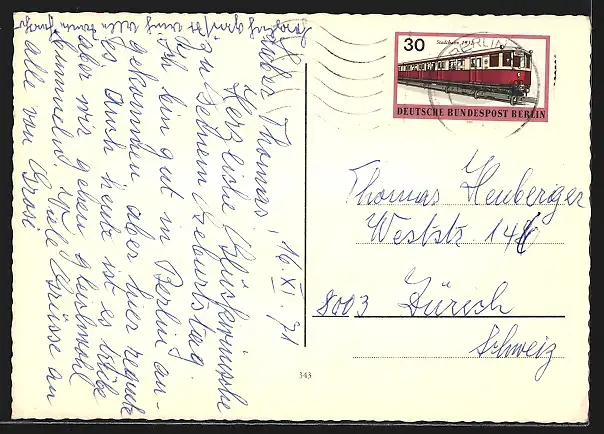 30
Stadtbahn 1932
BERLIN
DEUTSCHE BUNDESPOST BERLIN
16.XI.71
Lieber Thomas,
Herzliche Glückwünsche
zu Deinem Geburtstag.
Ich bin gut in Berlin an-
gekommen aber hier regnete
es auch heute ist es trübe
aber wir gehen gleichwohl
bummeln. Viele Grüsse an
alle von Grosi
Thomas Heuberger
Weststr. 146
8003 Zürich
Schweiz
343